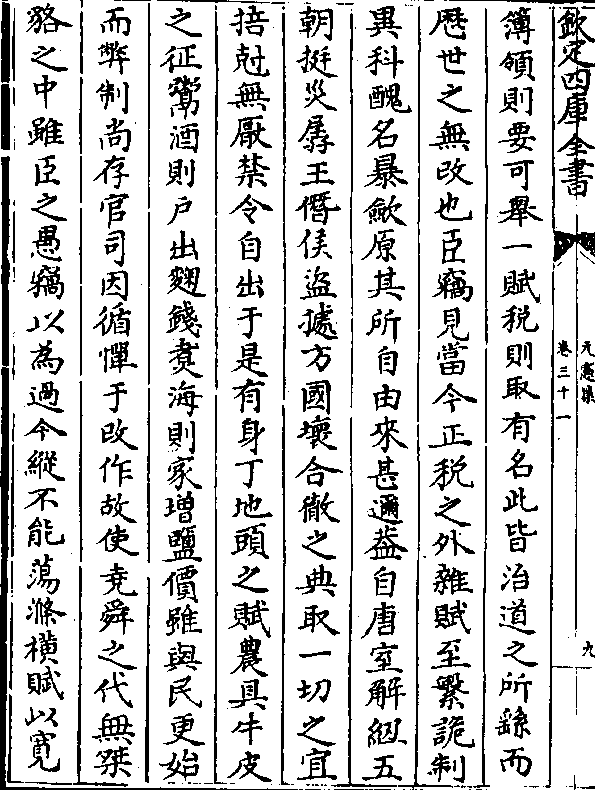 欽定四庫全書
元憲集
卷三十一
九
簿領則要可舉一賦税則取有名此皆治道之所繇而
歴世之無改也臣竊見當今正税之外雜賦至繁詭制
異科醜名暴歛原其所自由來甚邇葢自唐室解紐五
朝挺災孱王僭侯盜據方國壞合徹之典取一切之宜
掊尅無厭禁令自出于是有身丁地頭之賦農具牛皮
之征鬻酒則戸出麴錢煑海則家增鹽價雖與民更始
而弊制尚存官司因循憚于改作故使尭舜之代無桀
貉之中雖臣之愚竊以為過今縱不能蕩滌橫賦以寛